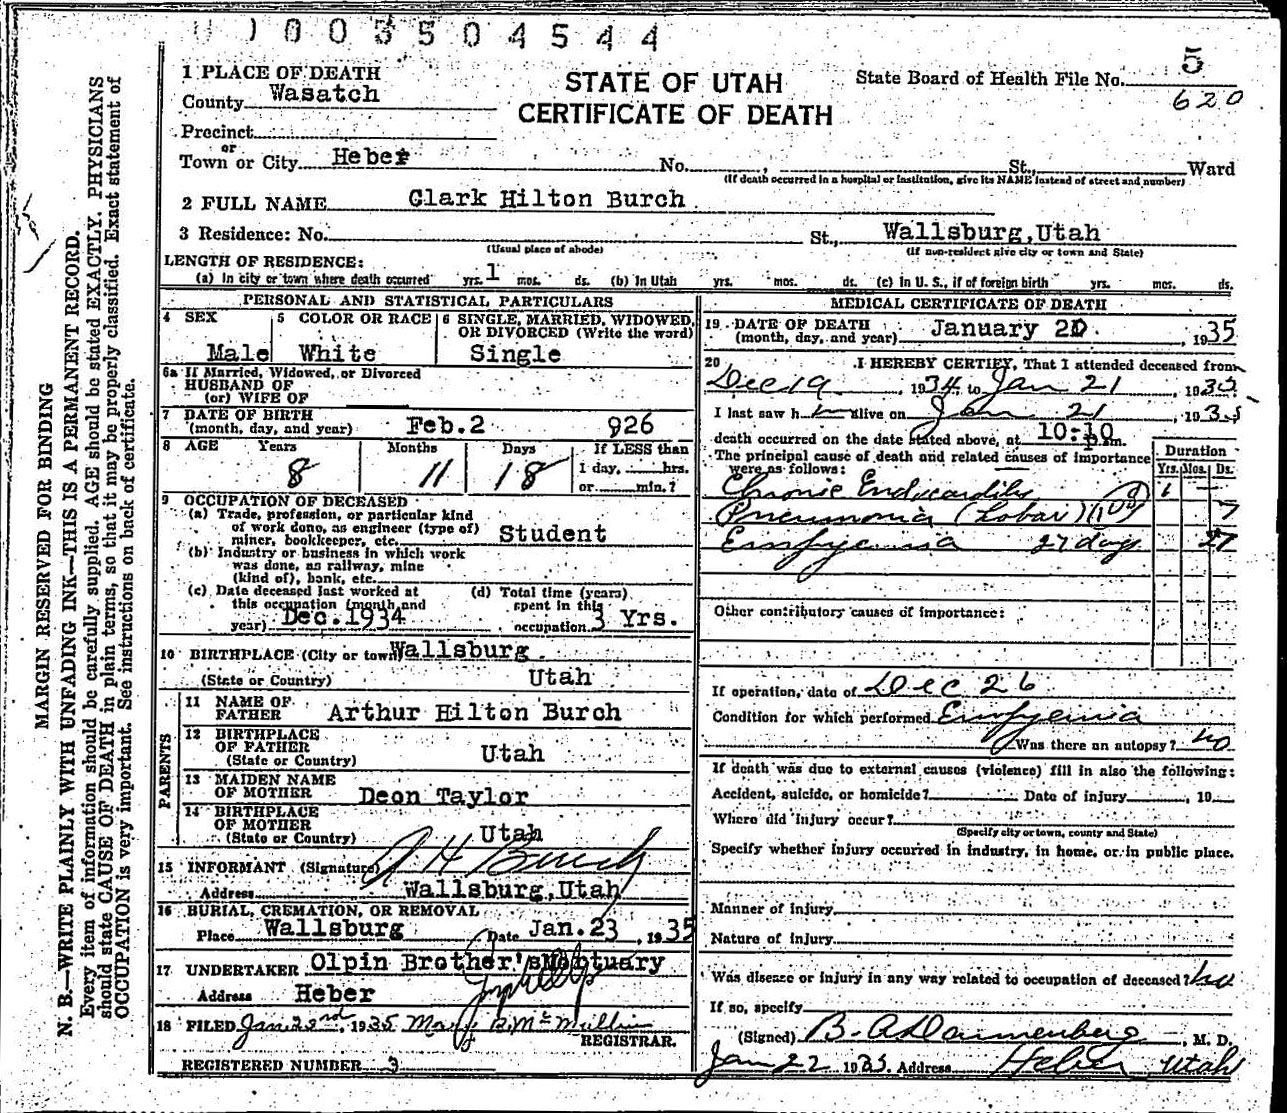 0 0 3 5 0 4 5 4 4
MARGIN RESERVED FOR BINDING
N. B.—WRITE PLAINLY WITH UNFADING INK—THIS IS A PERMANENT RECORD.
Every item of information should be carefully supplied. AGE should be stated EXACTLY. PHYSICIANS
should state CAUSE OF DEATH in plain terms, so that it may be properly classified. Exact statement of
OCCUPATION is very important. See instructions on back of certificate.
STATE OF UTAH
CERTIFICATE OF DEATH
State Board of Health File No. 5
620
1 PLACE OF DEATH
County Wasatch
Precinct
or
Town or City Heber No. St., Ward
(If death occurred in a hospital or institution, give its NAME instead of street and number)
2 FULL NAME Clark Hilton Burch
3 Residence: No. St., Wallsburg,Utah
(Usual place of abode) (If non-resident give city or town and State)
LENGTH OF RESIDENCE:
(a) In city or town where death occurred yrs. 1 mos. ds. (b) In Utah yrs. mos. ds. (c) In U. S., if of foreign birth yrs. mos. ds.
PERSONAL AND STATISTICAL PARTICULARS
4 SEX Male
5 COLOR OR RACE White
6 SINGLE, MARRIED, WIDOWED, OR DIVORCED (Write the word) Single
6a If Married, Widowed, or Divorced
HUSBAND OF
(or) WIFE OF
7 DATE OF BIRTH
(month, day, and year) Feb.2 926
8 AGE Years Months Days If LESS than
8 11 18 1 day, hrs.
or min.?
9 OCCUPATION OF DECEASED
(a) Trade, profession, or particular kind
of work done, as engineer (type of)
miner, bookkeeper, etc. Student
(b) Industry or business in which work
was done, as railway, mine
(kind of), bank, etc.
(c) Date deceased last worked at
this occupation (month and
year) Dec.1934
(d) Total time (years)
spent in this
occupation 3 Yrs.
10 BIRTHPLACE (City or town) Wallsburg
(State or Country) Utah
PARENTS
11 NAME OF
FATHER Arthur Hilton Burch
12 BIRTHPLACE
OF FATHER
(State or Country) Utah
13 MAIDEN NAME
OF MOTHER Deon Taylor
14 BIRTHPLACE
OF MOTHER
(State or Country) Utah
15 INFORMANT (Signature) A H Burch
Address Wallsburg,Utah
16 BURIAL, CREMATION, OR REMOVAL
Place Wallsburg Date Jan.23, 1935
17 UNDERTAKER Olpin Brother's Mortuary
Address Heber
18 FILED Jan 22nd, 1935 Mary B. McMullin
REGISTRAR.
REGISTERED NUMBER 3
MEDICAL CERTIFICATE OF DEATH
19 DATE OF DEATH
(month, day, and year) January 20, 1935
20 I HEREBY CERTIFY, That I attended deceased from
Dec 19 1934 to Jan 21 1935
I last saw him alive on Jan 21, 1935
death occurred on the date stated above, at 10:10 p.m.
The principal cause of death and related causes of importance
were as follows:
Duration
Yrs. Mos. Ds.
Chronic Endocarditis 6
Pneumonia (Lobar) 108 7
Empyemia 27 days 27
Other contributory causes of importance:
If operation, date of Dec 26
Condition for which performed Empyemia
Was there an autopsy? no
If death was due to external causes (violence) fill in also the following:
Accident, suicide, or homicide? Date of injury , 19
Where did injury occur?
(Specify city or town, county and State)
Specify whether injury occurred in industry, in home, or in public place.
Manner of injury
Nature of injury
Was disease or injury in any way related to occupation of deceased? no
If so, specify
(Signed) B. A. Dannenberg, M. D.
Jan 22 1935. Address Heber Utah